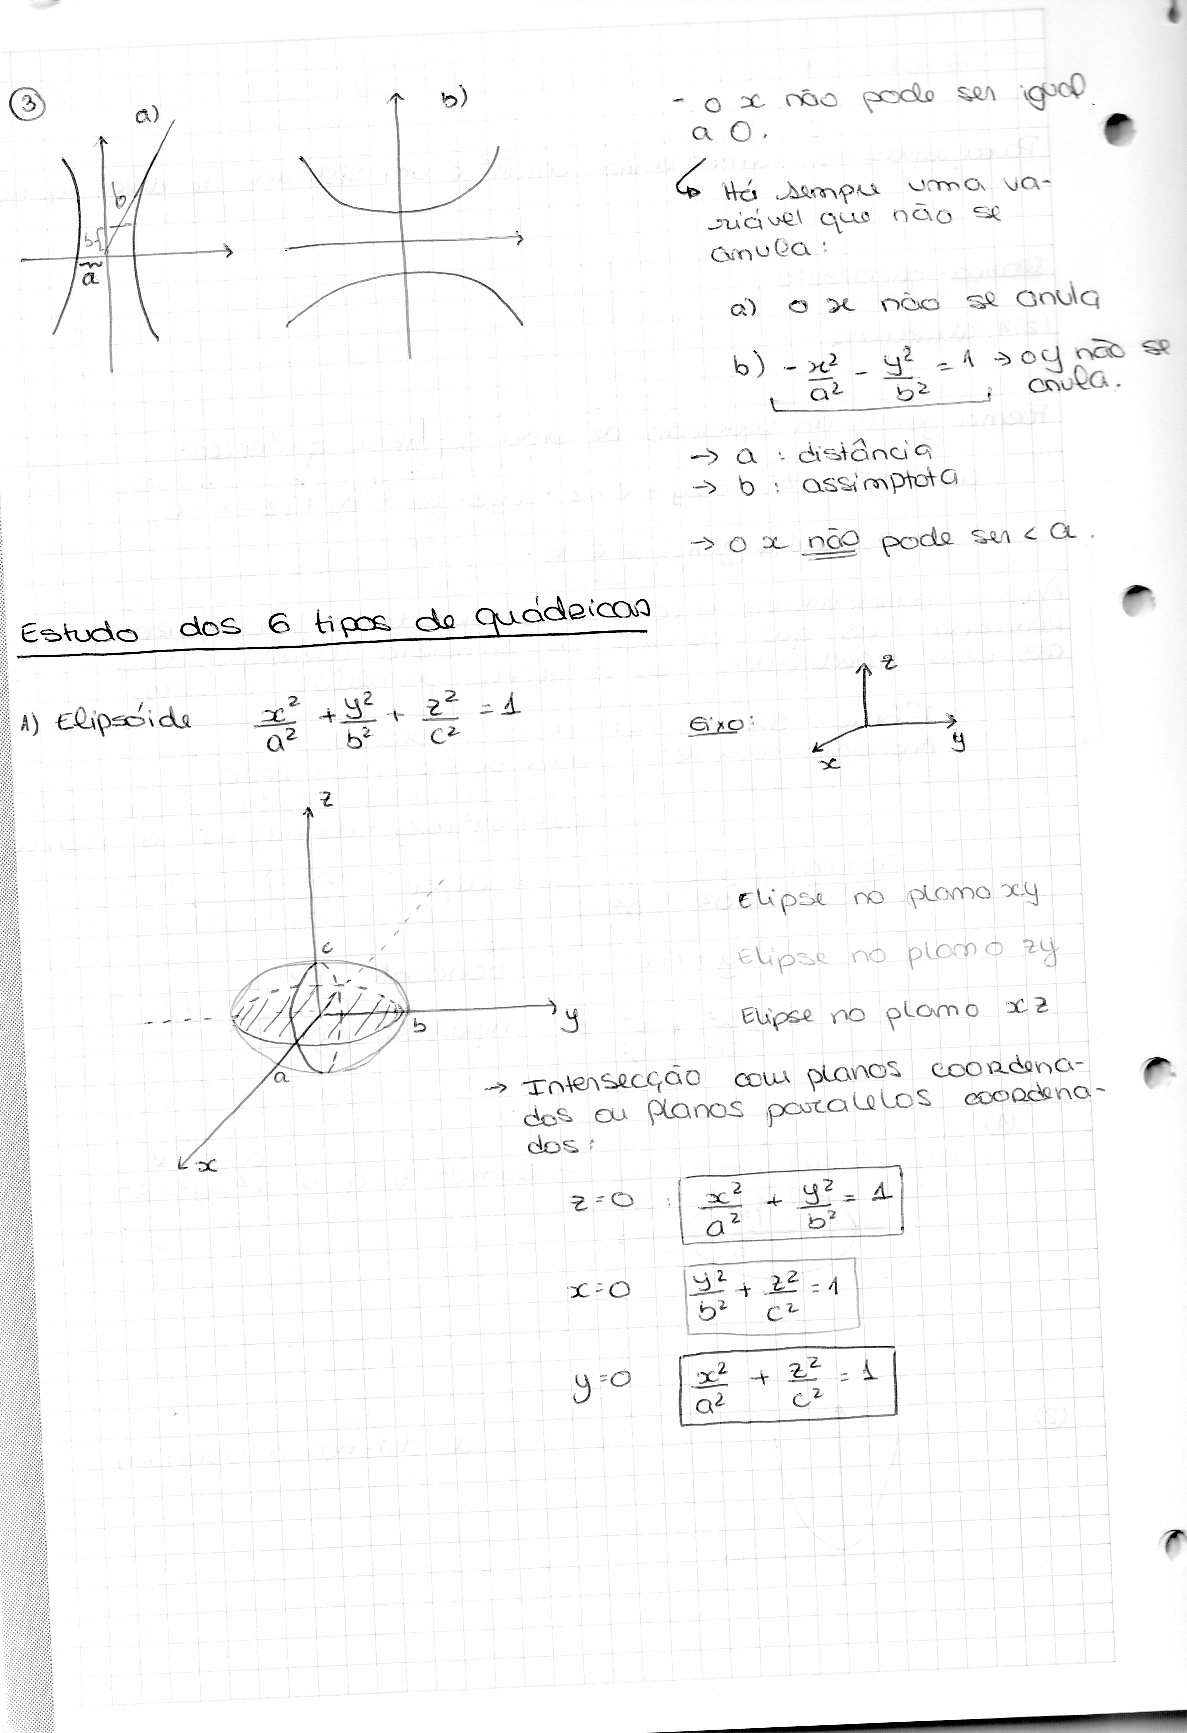 3
a)
b)
b
b
a
- o x não pode ser igual
a 0.
↳ Há sempre uma va-
riável que não se
anula:
a) o x não se anula
b) -x²/a² - y²/b² = 1 → o y não se
anula.
→ a : distância
→ b : assimptota
→ o x não pode ser < a.
Estudo dos 6 tipos de quádricas
A) Elipsóide x²/a² + y²/b² + z²/c² = 1
Eixo:
z
y
x
z
c
y
b
a
x
Elipse no plano xy
Elipse no plano zy
Elipse no plano xz
→ Intersecção com planos coordena-
dos ou planos paralelos coordena-
dos:
z=0 : x²/a² + y²/b² = 1
x=0 y²/b² + z²/c² = 1
y=0 x²/a² + z²/c² = 1